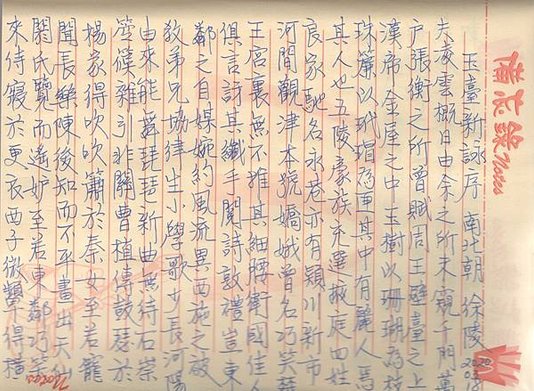 備忘錄Notes
玉臺新詠序 南北朝 徐陵
夫凌雲概日由余之所未窺千門萬
户張衡之所曾賦周王璧臺之上
漢帝金屋之中玉樹以珊瑚為枝
珠簾以玳瑁為匣其中有麗人焉
其人也五陵豪族充選掖庭四姓
良家馳名永巷亦有穎川新市
河間觀津本號嬌娥曾名巧笑楚
王宮裏無不推其細腰衛國佳人
俱言訝其纖手閱詩敦禮豈東
鄰之自媒婉約風流異西施之被
教弟兄協律生小學歌少長河陽
由來能舞琵琶新曲無待石崇
箜篌雜引非關曹植傳鼓瑟於
楊家得吹簫於秦女至若寵
聞長樂陳後知而不平畫出天仙
閼氏覽而遙妒至若東鄰巧笑
來侍寢於更衣西子微顰得橫
2020
Notes